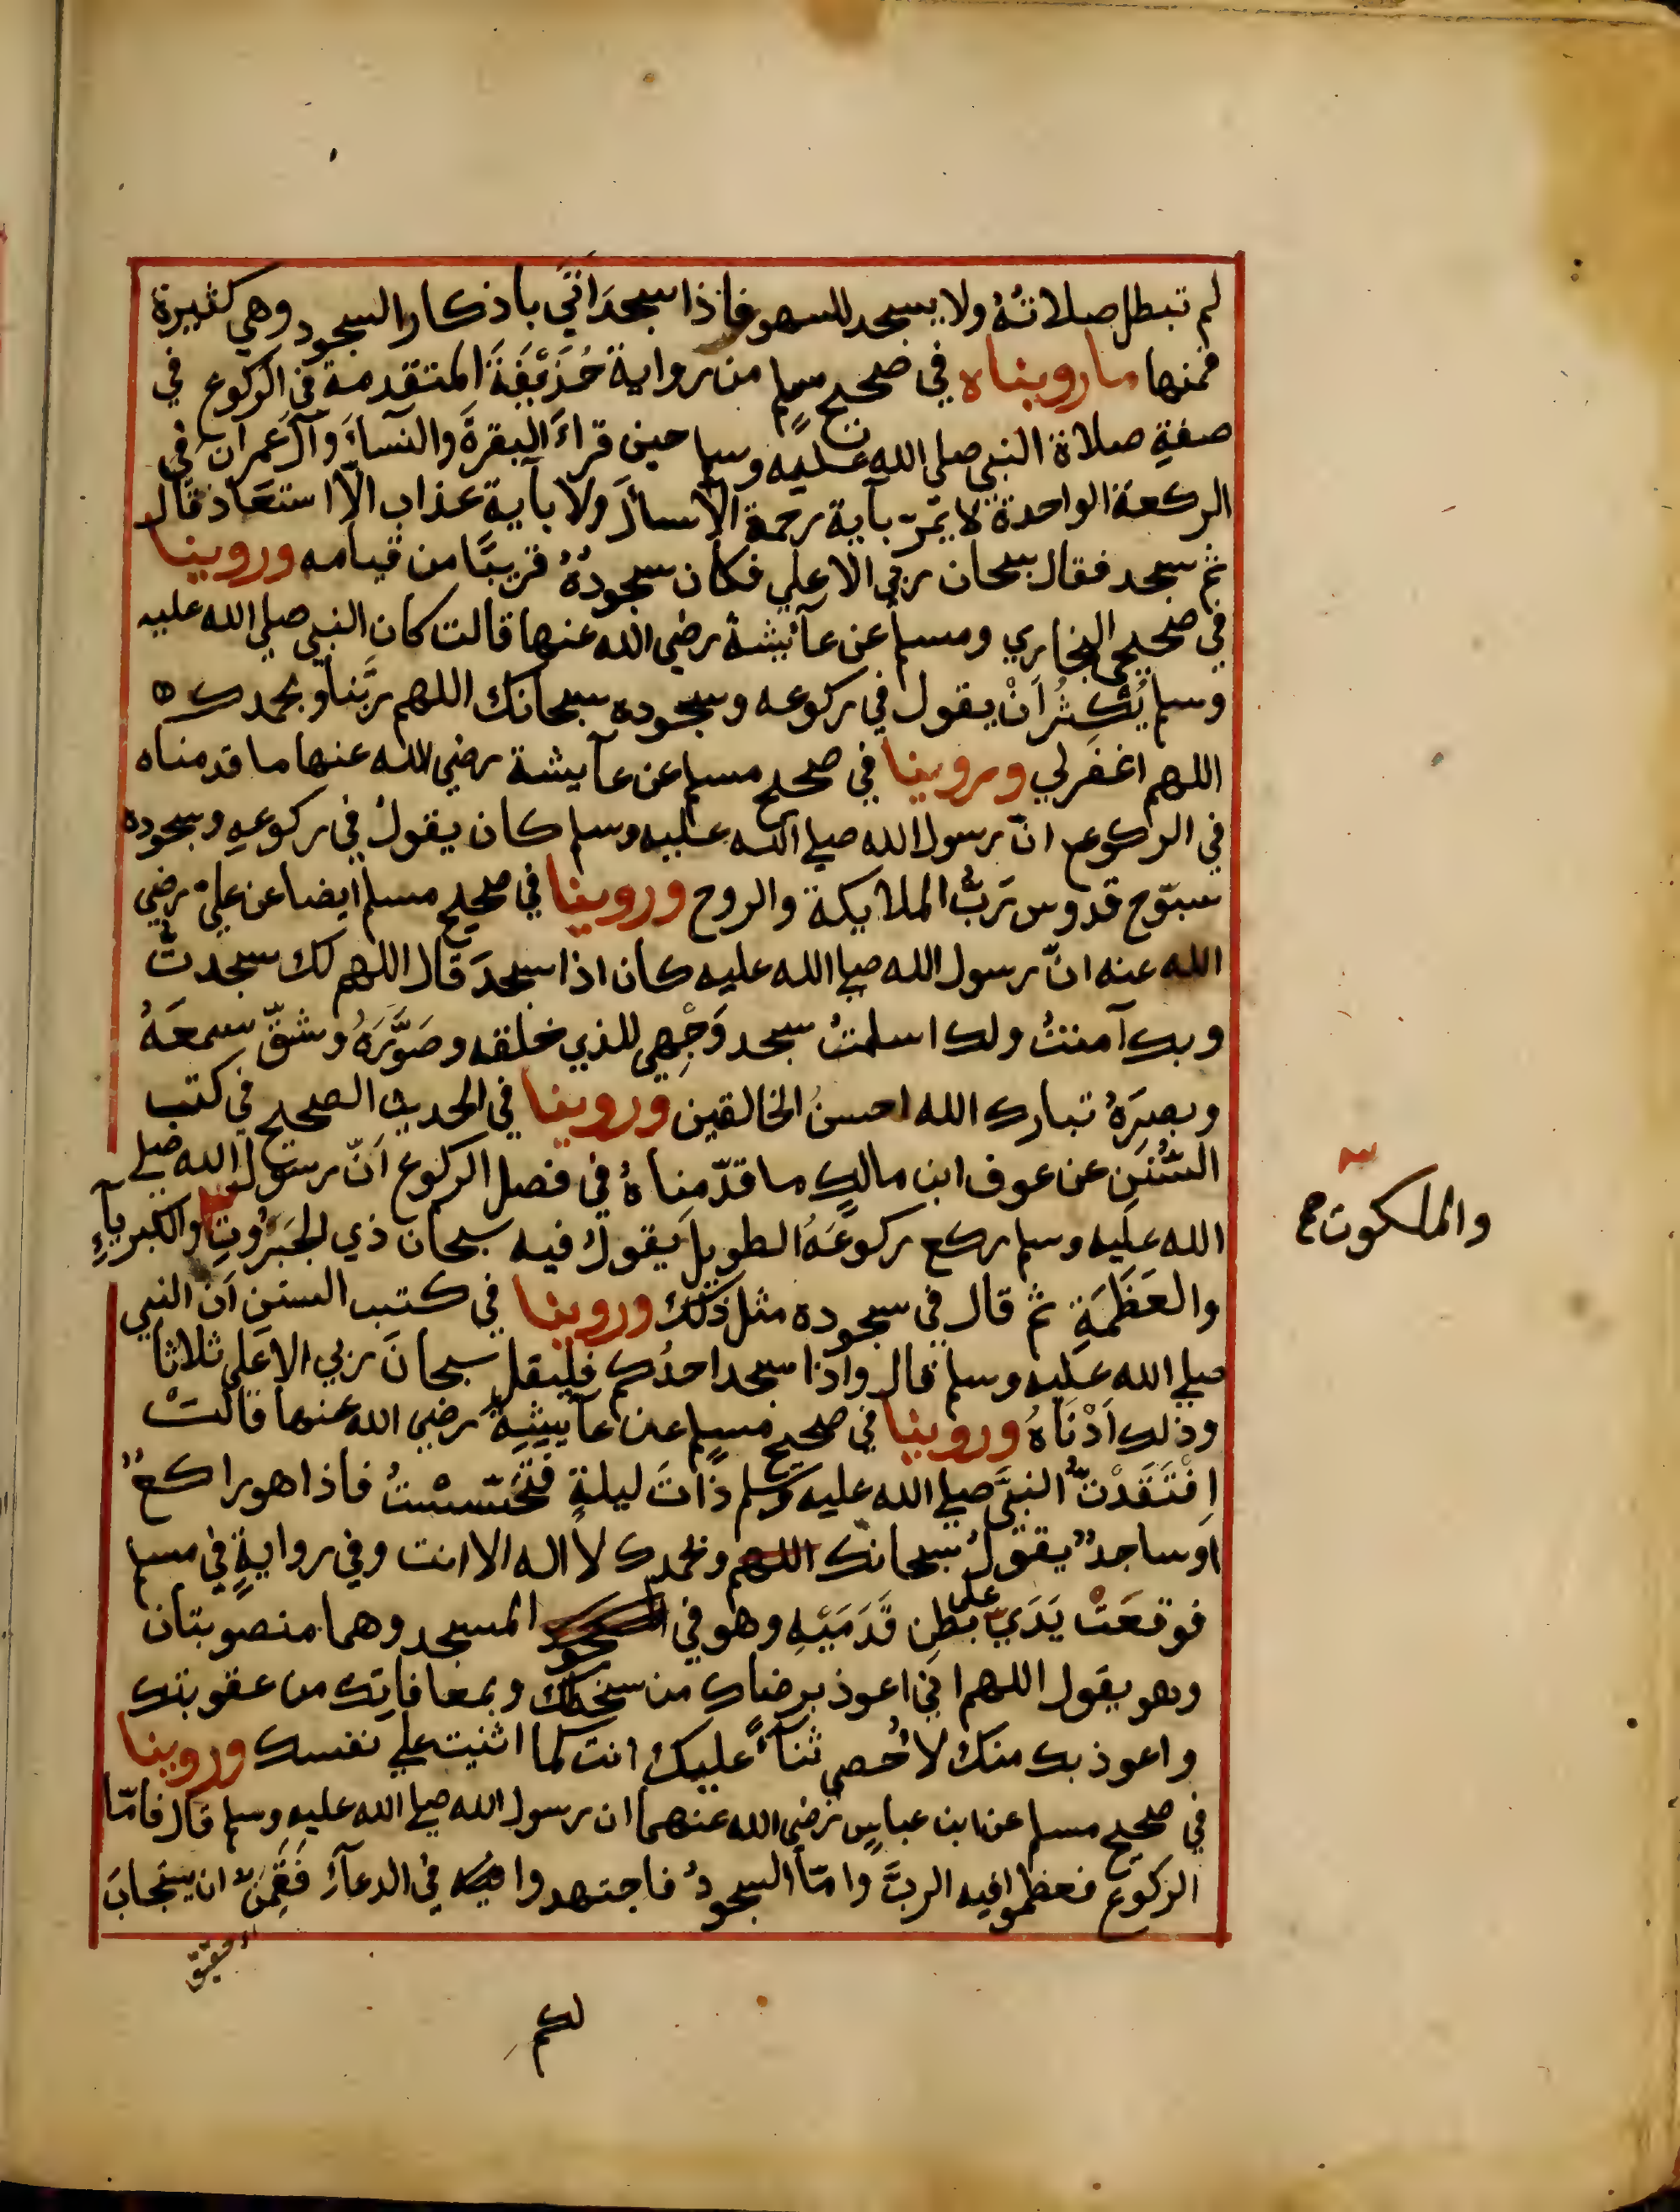 لم تبطل صلاتهُ ولا يسجد للسهو فاذا سجدَ اتَي باذكار السجود وهي كثيرة
فمنها ما رويناه في صحيح مسلمٍ من رواية حُذَيْفَةَ المتقدمة في الركوع في
صفةِ صلاة النبي صلي الله عليه وسلم حين قراءَ البقرةَ والنسآءَ وآل عمران في
الركعة الواحدة لا يمّرّ بآية رحمة الا سألَ ولا بآية عذاب الّا استعَاذ قال
ثم سجد فقال سبحان ربي الاعلي فكان سجودُهُ قريبًا من قيامه وروينا
في صحيحي البخاري ومسلم عن عآئيشة رضي الله عنها قالت كان النبي صلي الله عليه
وسلم يُكثِرُ اَنْ يقول في ركوعه وسجوده سبحانك اللهم ربَّنا وبحمدك ه
اللهم اغفرلي وروينا في صحيح مسلم عن عآيشة رضي الله عنها ما قدمناه
في الركوع انّ رسول الله صلي الله عليه وسلم كان يقولُ في ركوعهِ وسجوده
سبّوح قدوس رَبُّ الملايكة والروح وروينا في صحيح مسلم ايضا عن عليّ رضي
الله عنه انّ رسول الله صلي الله عليه كان اذا سجدَ قال اللهم لك سجدتُّ
وبك آمنتُ ولك اسلمتُ سجد وَجْهِي للذي خلقه وصَوَّرَهُ وشقّ سمعَهُ
وبصرَهُ تبارك الله احسنُ الخالقين وروينا في الحديث الصحيح في كتب
السُّنَنِ عن عوف ابن مالكٍ ما قدّمناهُ في فصل الركوع اَنّ رسول الله صلي
الله عليه وسلم ركع ركوعَهُ الطويل يقولُ فيه سبحان ذي الجَبَرُوتِ والكبريآءِ
والملكوت صح
والعَظَمَةِ ثم قال في سجوده مثل ذلك وروينا في كتب السنن اَن النبي
صلي الله عليه وسلم قال واذا سجد احدُكم فليقل سبحانَ ربي الاعلي ثلاثا
وذلك اَدْنَاهُ وروينا في صحيح مسلمٍ عن عآييشةَ رضي الله عنها قالتْ
اِفْتَقَدْتُّ النبيَّ صلي الله عليه وسلم ذَاتَ ليلةٍ فتَحَسّسْتُ فاذا هو راكعٌ
اَوساجدٌ يقولُ سبحانك اللهم وبحمدك لا اله الا انت وفي روايةٍ في مسلم
فوقعَتْ يَدَيّ على بطنِ قَدَمَيْهِ وهو في المسجد وهما منصوبتان
وهو يقول اللهم اني اعوذ برضاك من سخطك وبمعافاتِك من عقوبتك
واعوذ بك منك لا اُحصي ثنآءً عليك انت كما اثنيت علي نفسك وروينا
في صحيح مسلم عن ابن عباسٍ رضي الله عنهما ان رسول الله صلي الله عليه وسلم قال فامّا
الركوع فعظموا فيه الربَّ وامّا السجودُ فاجتهدوا فيه في الدعآءِ فَقَمِنٌ ان يستجابَ
لكم